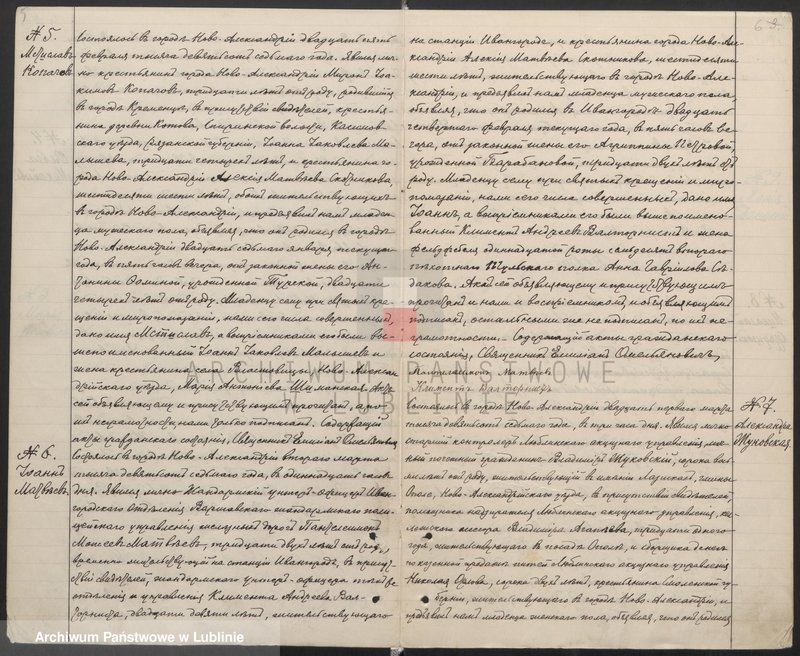 № 5.
Мстислав
Копачовъ
состоялось въ городѣ Ново-Александріи двадцать пять
февраля тысяча девятьсотъ седьмого года. Явился лич-
но крестьянинъ города Ново-Александріи Миронъ Іоа-
кимовъ Копачовъ, тридцати лѣтъ отъ роду, родившійся
въ городѣ Кременецъ, въ присутствіи свидѣтелей, крестья-
нина деревни Котова, волости, Касимов-
скаго уѣзда, Рязанской губерніи, Іоанна Іаковлева Ма-
лышева, тридцати четырехъ лѣтъ и крестьянина го-
рода Ново-Александріи Алексія Матвѣева Скопникова,
шестидесяти шести лѣтъ, обоихъ жительствующихъ
въ городѣ Ново-Александріи, и предъявилъ намъ младен-
ца мужескаго пола, объявляя, что онъ родился въ городѣ
Ново-Александріи двадцать седьмого января текущаго
года, въ пять часовъ вечера, отъ законной жены его Ан-
тонины Фоминой, урожденной Турской, двадцати
четырехъ лѣтъ отъ роду. Младенцу сему при святомъ кре-
щеніи и миропомазаніи, нами сего числа совершенныхъ,
дано имя Мстиславъ, а воспріемниками его были вы-
шепоименованный Іоаннъ Іаковлевъ Малышевъ и
жена крестьянина села Ново-Алексан-
дрійскаго уѣзда, Марія Антоніева Шиманская. Актъ
сей объявляющему и присутствующимъ прочитанъ, а по
ихъ неграмотности нами только подписанъ. Содержащій
акты гражданскаго состоянія, Священникъ Емиліанъ Омельяновичъ
№ 6.
Іоаннъ
Матвѣевъ
Состоялось въ городѣ Ново-Александріи второго марта
тысяча девятьсотъ седьмого года, въ одиннадцать часовъ
дня. Явился лично Жандармскій унтеръ-офицеръ Иван-
городскаго отдѣленія Варшавскаго жандармскаго поли-
цейскаго управленія желѣзныхъ дорогъ Пантелеимонъ
Моисеевъ Матвѣевъ, тридцати двухъ лѣтъ отъ роду,
временно жительствующій на станціи Ивангородъ, въ присут-
ствіи свидѣтелей, жандармскаго унтеръ-офицера того же
отдѣленія и управленія Климента Андреева Вал-
торниста, двадцати девяти лѣтъ, жительствующаго
на станціи Ивангородъ, и крестьянина города Ново-Але-
ксандріи Алексія Матвѣева Скопникова, шестидесяти
шести лѣтъ, жительствующаго въ городѣ Ново-Але-
ксандріи, и предъявилъ намъ младенца мужескаго пола,
объявляя, что онъ родился въ Ивангородѣ двадцать
четвертаго февраля текущаго года, въ пять часовъ ве-
чера, отъ законной жены его Агриппины Петровой,
урожденной Барабановой, тридцати двухъ лѣтъ отъ
роду. Младенцу сему при святомъ крещеніи и миро-
помазаніи, нами сего числа совершенныхъ, дано имя
Іоаннъ, а воспріемниками его были вышепоимено-
ванный Климентъ Андреевъ Валторнистъ и жена
фельдфебеля одиннадцатой роты семьдесятъ второго
пѣхотнаго Тульскаго полка Анна Гавріилова
Актъ сей объявляющему и присутствующимъ
прочитанъ и нами и воспріемникомъ и объявляющимъ
подписанъ, остальными же не подписанъ, по ихъ не-
грамотности. Содержащій акты гражданскаго
состоянія, Священникъ Емиліанъ Омельяновичъ,
Пантелеимонъ Матвѣевъ
Климентъ Валторнистъ
№ 7.
Александра
Жуковская
Состоялось въ городѣ Ново-Александріи двадцать перваго марта
тысяча девятьсотъ седьмого года, въ три часа дня. Явился лично
старшій контролеръ Люблинскаго акцизнаго управленія, лич-
ный почетный гражданинъ Владиміръ Жуковскій, сорока
лѣтъ отъ роду, жительствующій въ имѣніи гмины
Ополе, Ново-Александрійскаго уѣзда, въ присутствіи свидѣтелей,
помощника надзирателя Люблинскаго акцизнаго управленія, ти-
Владиміра Агапѣева, тридцати одного
года, жительствующаго въ посадѣ Ополѣ, и сборщика денегъ
по казенной продажѣ питей Люблинскаго акцизнаго управленія
Николая Орлова, сорока двухъ лѣтъ, крестьянина Смоленской гу-
берніи, жительствующаго въ городѣ Ново-Александріи, и
предъявилъ намъ младенца женскаго пола, объявляя, что онъ родился
ARCHIWUM PAŃSTWOWE
W LUBLINIE
Archiwum Państwowe w Lublinie